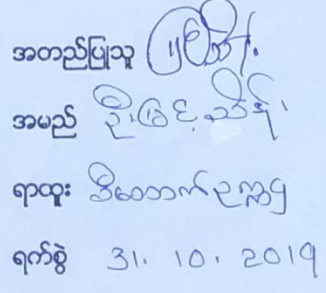 အတည်ပြုသူ
အမည် ဦးမြင့်သိန်း
ရာထူး ဒီမောက်ဥက္ကဌ
ရက်စွဲ 31. 10. 2019